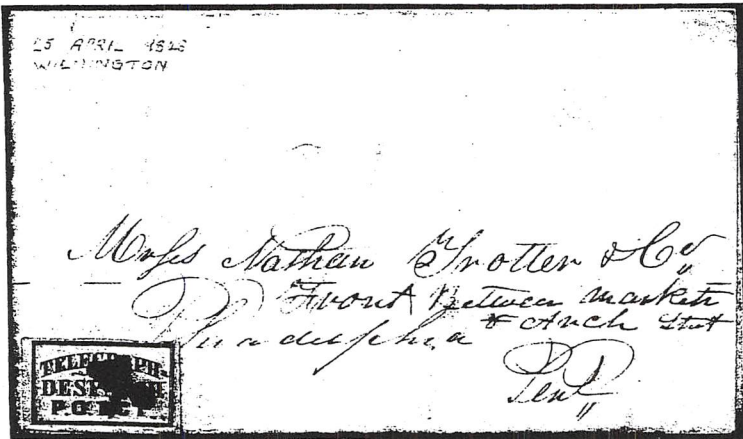 25 APRIL
WILMINGTON
Messs Nathan Trotter & Co
Front Between market
& Arch Street
Philadelphia
TELEGRAPH
DESPATCH